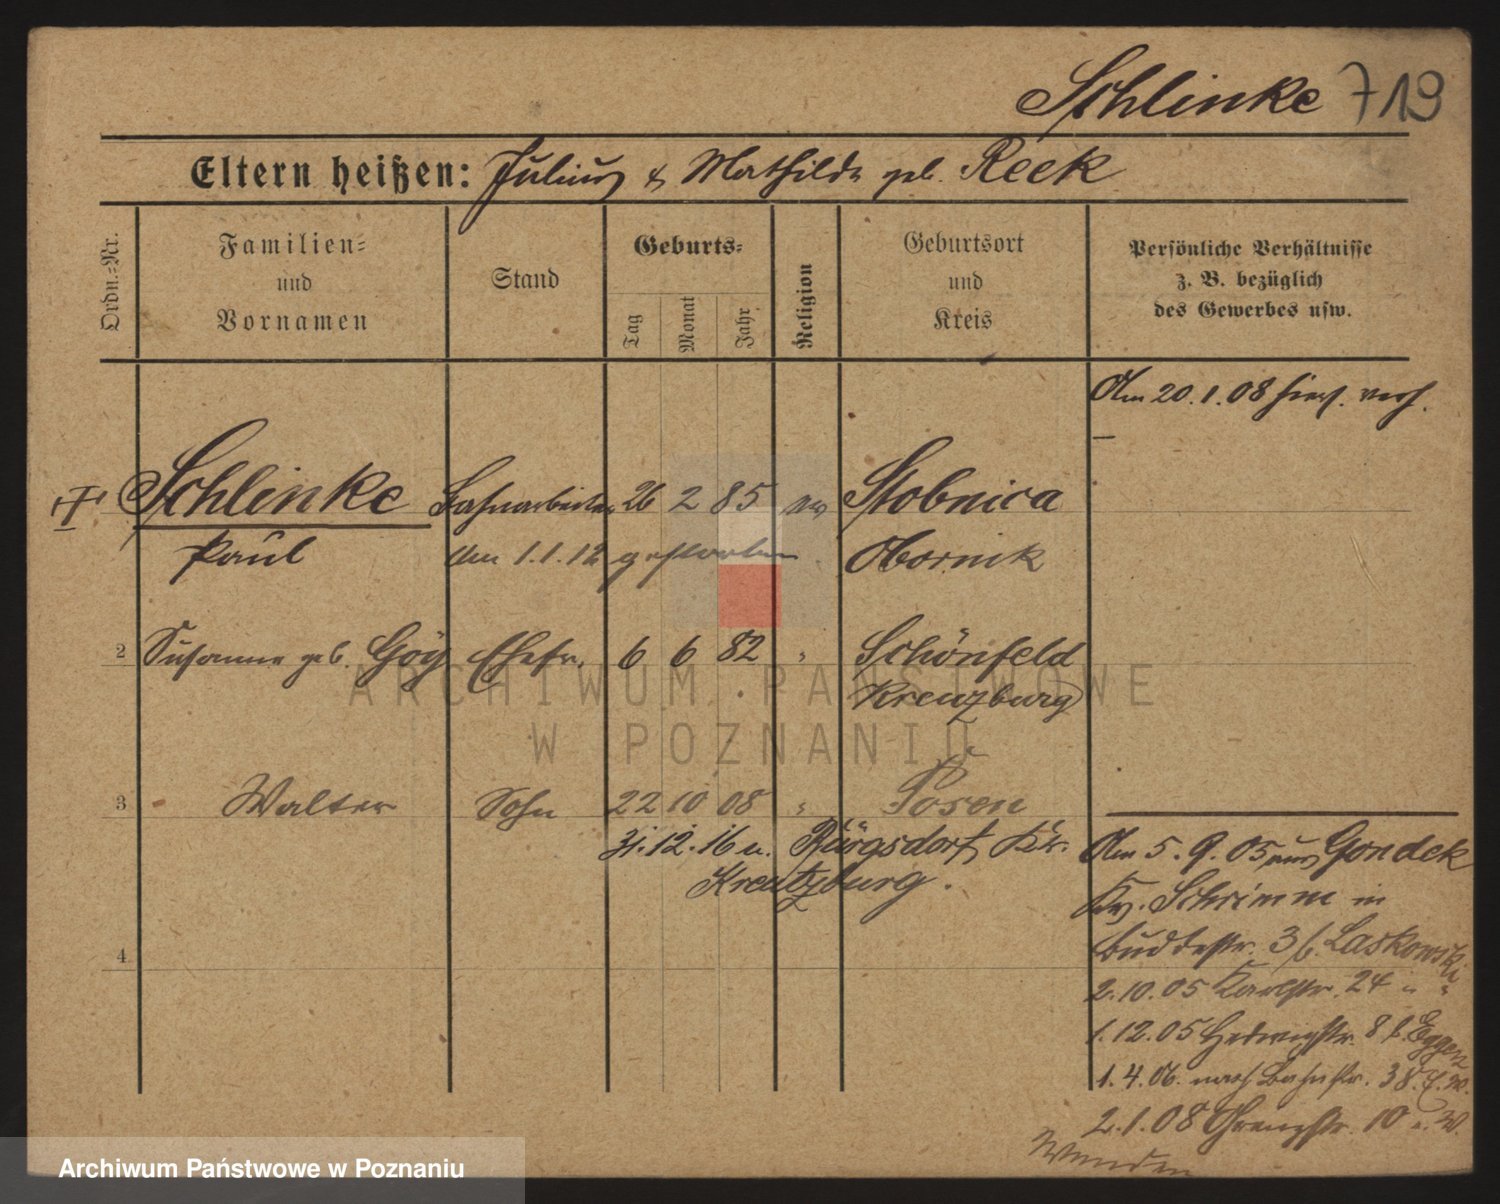 Schlinke 719
Eltern heißen: Julius & Mathilde geb. Reek
Ordn.-Nr.
Familien-
und
Vornamen
Stand
Geburts-
Tag
Monat
Jahr
Religion
Geburtsort
und
Kreis
Persönliche Verhältnisse
z. B. bezüglich
des Gewerbes usw.
Am 20.1.08 hies. verh.
Schlinke Bahnarbeiter 26 2 85 ev Stobnica
Paul Am 1.1.12 gestorben Obornik
2 Susanne geb. Göy Ehefr. 6 6 82 " Schönfeld
Kreuzburg
3 Walter Sohn 22 10 08 " Posen
31.12.16 n. Bürgsdorf Kr.
Kreutzburg.
Am 5.9.05 aus Gondek
Kr. Schrimm in
Buddestr. 3 b. Laskowski
4
2.10.05 Karlstr. 24 " "
1.12.05 Hedwigstr. 8 b. Eggen
1.4.06. nach Bahnstr. 38.
2.1.08 Grenzstr. 10 u. W.
Wenden
ARCHIWUM PAŃSTWOWE
W POZNANIU
Archiwum Państwowe w Poznaniu